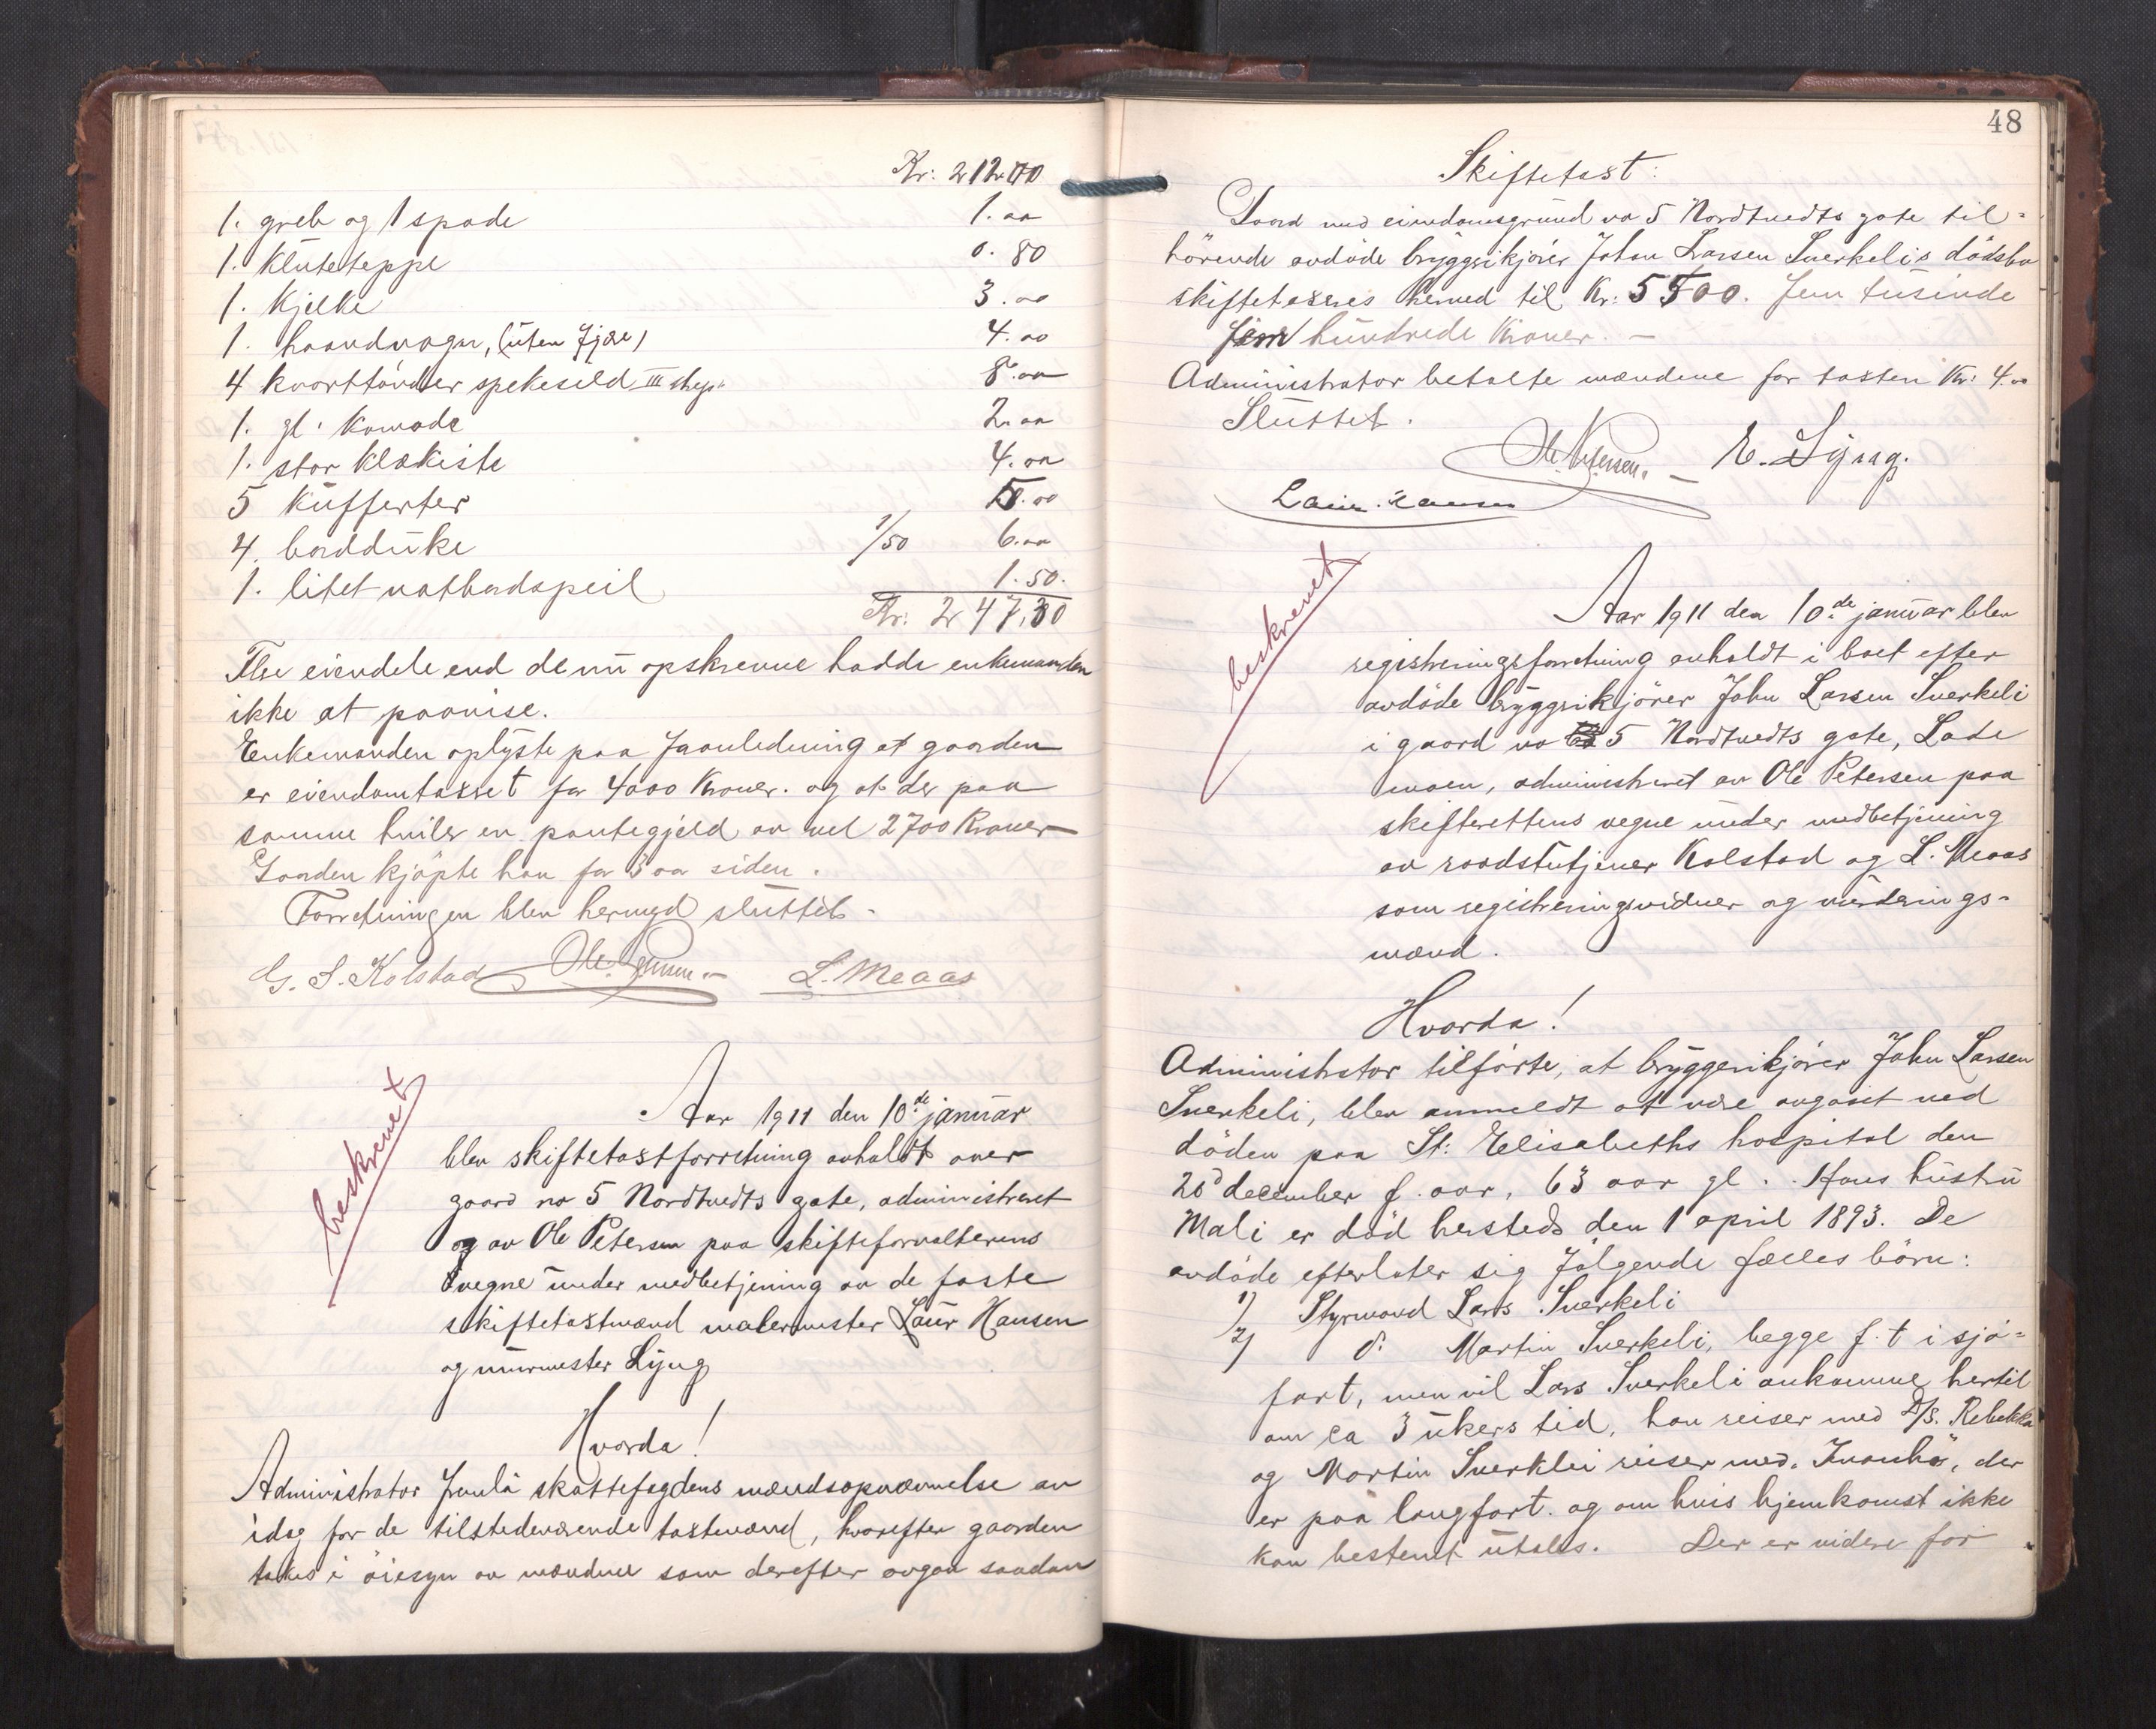 Kr: 212.00
1. greb og 1 spade 1.00
1. kluteteppe 0.80
1. Kjelke 3.00
1. haandvogn, (uten fjære) 4.00
4 kvarttönder spekesild III 8.00
1. gl. Komode 2.00
1. stor klækiste 4.00
5 Kufferter 5.00
4. bordduke 1/50 6.00
1. litet natbordspeil 1.50.
Kr: 247,30
Flere eiendele end de nu opskrevne hadde enkemanden
ikke at paavise.
Enkemanden oplyste paa foranledning at gaarden
er eiendomtakset for 4000 Kroner. og at der paa
samme hviler en pantegjeld av vel 2700 Kroner
Gaarden kjöpte han for 3 aar siden.
Forretningen blev hermed sluttet.
G. S. Kolstad Ole Petersen. L. Meaas
beskrevet
Aar 1911 den 10de januar
blev skiftetakstforretning avholdt over
gaard no 5 Nordtvedts gate, administreret
og av Ole Petersen paa skifteforvalterens
vegne under medbetjening av de faste
skiftetakstmænd malermester Laur Hansen
og murmester Ljyng
Hvorda!
Administrator fremla skattefogdens mændsopnævnelse av
idag for de tilstedeværende takstmænd, hvorefter gaarden
tokes i öiesyn av mændene som derefter avgav saadan
48
Skiftetakst:
Gaard med eiendomsgrund no 5 Nordtvedts gate til-
hörende avdöde bryggerikjörer Johan Larsen Sverkelis dödsbo
skiftetakseres herved til Kr: 5500. Fem tusinde
fem hundrede Kroner. —
Administrator betalte mændene for taksten Kr: 4.00
Sluttet.
Ole Petersen. — E. Ljyng.
Laur. Hansen
beskrevet
Aar 1911 den 10de januar blev
registreringsforretning avholdt i boet efter
avdöde bryggerikjörer John Larsen Sverkeli
i gaard no 5 Nordtvedts gate, Lade
moen, administreret av Ole Petersen paa
skifterettens vegne under medbetjening
av raadstutjener Kolstad og L. Meaas
som registreringsvidner og vurderings-
mænd.
Hvorda!
Administrator tilförte, at bryggerikjörer John Larsen
Sverkeli, blev anmeldt at være avgaaet ved
döden paa St: Elisabeths hospital den
20 december f. aar, 63 aar gl. Hans hustru
Mali er död hersteds den 1 april 1893. De
avdöde efterlater sig fölgende fælles börn:
1) Styrmand Lars Sverkeli
2) do Martin Sverkeli, begge f. t i sjö-
fart, men vil Lars Sverkeli ankomme hertil
om ca 3 ukers tid, han reiser med D/S. Rebekka
og Martin Sverklei reiser med. Ivanhö, der
er paa langfart. og om hvis hjemkomst ikke
kan bestemt utales. Der er videre for